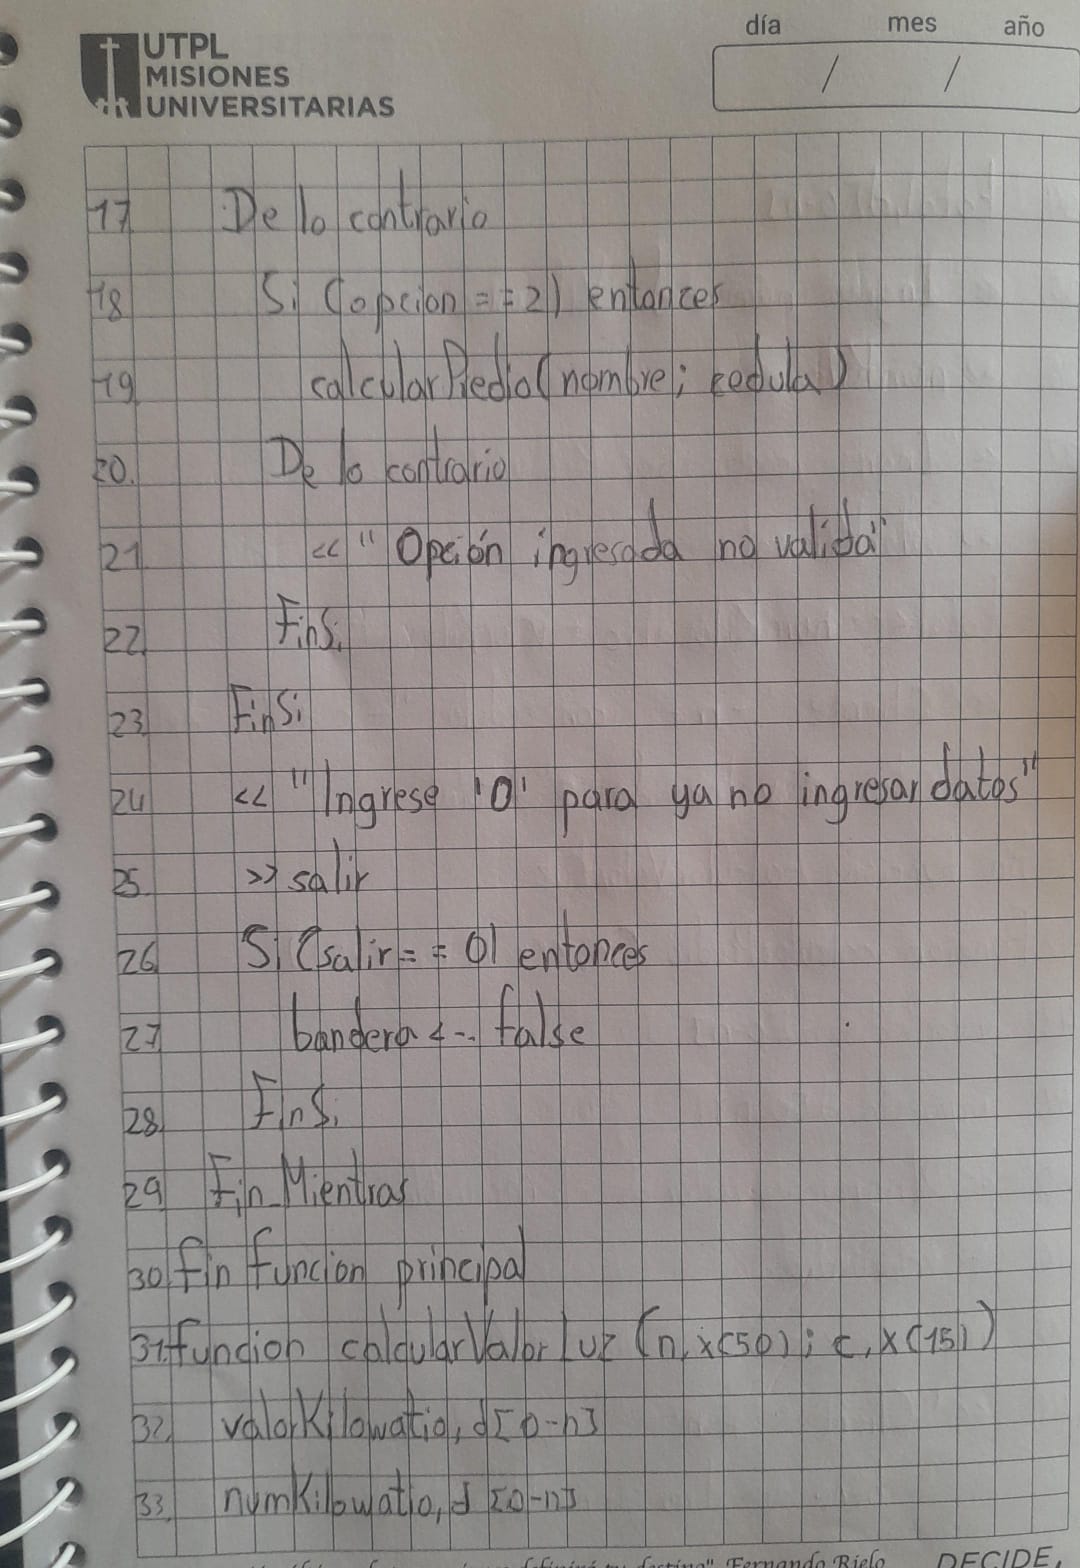 UTPL
MISIONES
UNIVERSITARIAS
día mes año
/ /
17 De lo contrario
18 Si (opcion == 2) entonces
19 calcularPredio(nombre; cedula)
20. De lo contrario
21 << "Opción ingresada no valida"
22 FinSi
23 FinSi
24 << "Ingrese '0' para ya no ingresar datos"
25. >> salir
26 Si (salir == 0) entonces
27 bandera <-- false
28 FinSi
29 Fin_Mientras
30 fin funcion principal
31. funcion calcularValorLuz (n, x(50); c, x(15))
32 valorKilowatio, d[0-n]
33. numKilowatio, d [0-n]
" Fernando Rielo DECIDE.